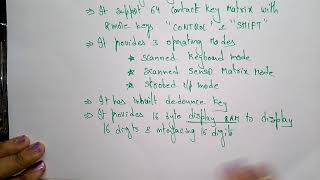 ⇒ It support 64 contact key Matrix with
2 mode keys "CONTROL" & "SHIFT"
⇒ It provides 3 operating modes
* Scanned keyboard mode
* Scanned sensor Matrix mode
* Strobed I/P mode
⇒ It has inbuilt debounce key
⇒ It provides 16 byte display RAM to display
16 digits & interfacing 16 digits